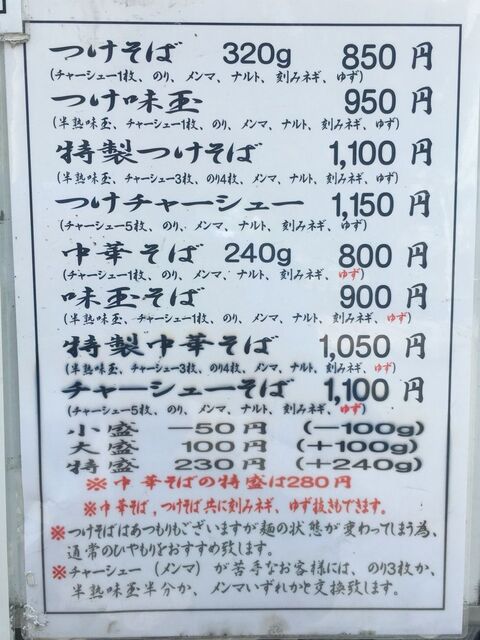 つけそば 320g 850円
(チャーシュー1枚、のり、メンマ、ナルト、刻みネギ、ゆず)
つけ味玉 950円
(半熟味玉、チャーシュー1枚、のり、メンマ、ナルト、刻みネギ、ゆず)
特製つけそば 1,100円
(半熟味玉、チャーシュー3枚、のり4枚、メンマ、ナルト、刻みネギ、ゆず)
つけチャーシュー 1,150円
(チャーシュー5枚、のり、メンマ、ナルト、刻みネギ、ゆず)
中華そば 240g 800円
(チャーシュー1枚、のり、メンマ、ナルト、刻みネギ、ゆず)
味玉そば 900円
(半熟味玉、チャーシュー1枚、のり、メンマ、ナルト、刻みネギ、ゆず)
特製中華そば 1,050円
(半熟味玉、チャーシュー3枚、のり4枚、メンマ、ナルト、刻みネギ、ゆず)
チャーシューそば 1,100円
(チャーシュー5枚、のり、メンマ、ナルト、刻みネギ、ゆず)
小盛 −50円 (−100g)
大盛 100円 (+100g)
特盛 230円 (+240g)
※中華そばの特盛は280円
※中華そば,つけそば共に刻みネギ、ゆず抜きもできます。
※つけそばはあつもりもございますが麺の状態が変わってしまう為、
通常のひやもりをおすすめ致します。
※チャーシュー (メンマ) が苦手なお客様には、のり3枚か、
半熟味玉半分か、メンマいずれかと交換致します。